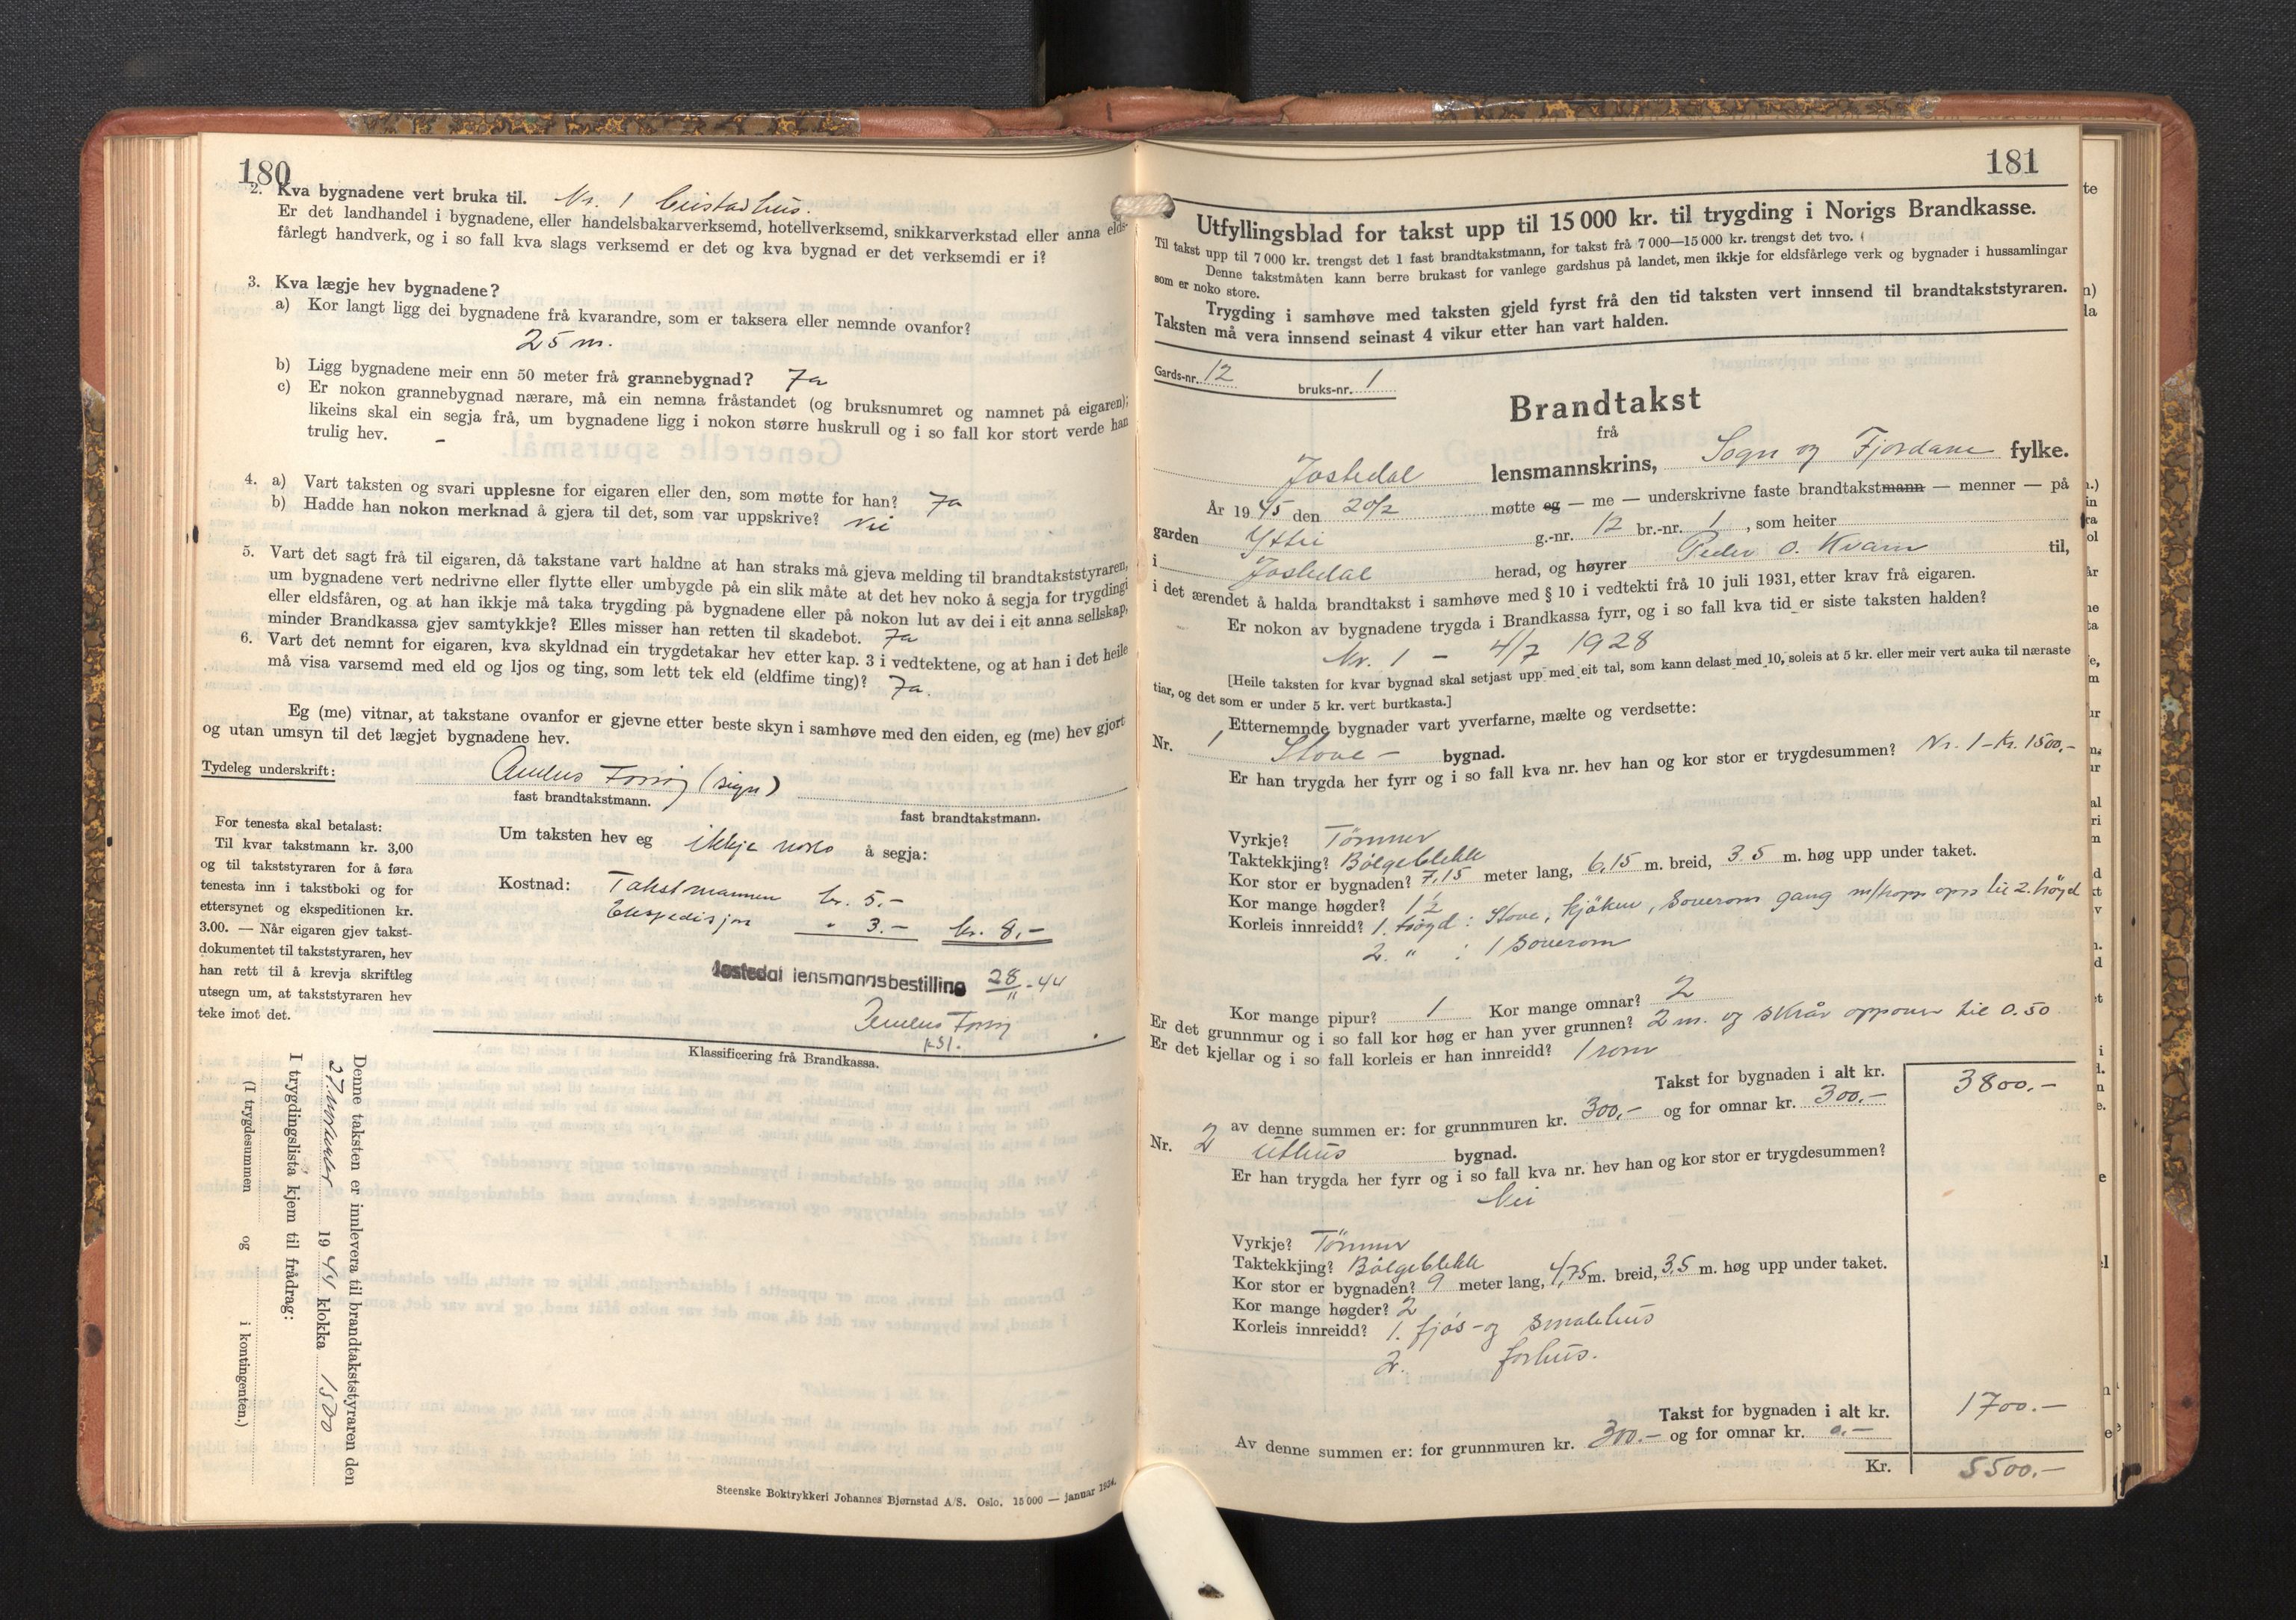 180
2. Kva bygnadene vert bruka til. Nr. 1
Er det landhandel i bygnadene, eller handelsbakarverksemd, hotellverksemd, snikkarverkstad eller anna elds-
fårlegt handverk, og i so fall kva slags verksemd er det og kva bygnad er det verksemdi er i?
3. Kva lægje hev bygnadene?
a) Kor langt ligg dei bygnadene frå kvarandre, som er taksera eller nemnde ovanfor?
25 m.
b) Ligg bygnadene meir enn 50 meter frå grannebygnad? Ja
c) Er nokon grannebygnad nærare, må ein nemna fråstandet (og bruksnumret og namnet på eigaren);
likeins skal ein segja frå, um bygnadene ligg i nokon større huskrull og i so fall kor stort verde han
trulig hev. -
4. a) Vart taksten og svari upplesne for eigaren eller den, som møtte for han? Ja
b) Hadde han nokon merknad å gjera til det, som var uppskrive? Nei
5. Vart det sagt frå til eigaren, då takstane vart haldne at han straks må gjeva melding til brandtakststyraren,
um bygnadene vert nedrivne eller flytte eller umbygde på ein slik måte at det hev noko å segja for trygdingi
eller eldsfåren, og at han ikkje må taka trygding på bygnadene eller på nokon lut av dei i eit anna sellskap,
minder Brandkassa gjev samtykkje? Elles misser han retten til skadebot. Ja
6. Vart det nemnt for eigaren, kva skyldnad ein trygdetakar hev etter kap. 3 i vedtektene, og at han i det heile
må visa varsemd med eld og ljos og ting, som lett tek eld (eldfime ting)? Ja.
Eg (me) vitnar, at takstane ovanfor er gjevne etter beste skyn i samhøve med den eiden, eg (me) hev gjort
og utan umsyn til det lægjet bygnadene hev.
Tydeleg underskrift: (sign)
fast brandtakstmann.
fast brandtakstmann.
For tenesta skal betalast:
Til kvar takstmann kr. 3,00
og til takststyraren for å føra
tenesta inn i takstboki og for
ettersynet og ekspeditionen kr.
3.00. — Når eigaren gjev takst-
dokumentet til takststyraren, hev
han rett til å krevja skriftleg
utsegn um, at takststyraren hev
teke imot det.
Um taksten hev eg ikkje noko å segja:
Kostnad: Takstmannen kr. 5.-
Ekspedisjon " 3.- kr. 8,-
Jostedal lensmannsbestilling 28/11-44
Klassificering frå Brandkassa.
Denne taksten er innlevera til brandtakststyraren den
27. november 1944 klokka 1500
I trygdingslista kjem til frådrag:
(I trygdesummen og i kontingenten.)
Steenske Boktrykkeri Johannes Bjørnstad A/S. Oslo. 15 000 — januar 1934.
181
Utfyllingsblad for takst upp til 15 000 kr. til trygding i Norigs Brandkasse.
Til takst upp til 7 000 kr. trengst det 1 fast brandtakstmann, for takst frå 7 000—15 000 kr. trengst det tvo.
Denne takstmåten kann berre brukast for vanlege gardshus på landet, men ikkje for eldsfårlege verk og bygnader i hussamlingar
som er noko store.
Trygding i samhøve med taksten gjeld fyrst frå den tid taksten vert innsend til brandtakststyraren.
Taksten må vera innsend seinast 4 vikur etter han vart halden.
Gards-nr. 12 bruks-nr. 1
Brandtakst
frå
Jostedal lensmannskrins, Sogn og Fjordane fylke.
År 1945 den 20/2 møtte eg — me — underskrivne faste brandtakstmann — menner — på
garden g.-nr. 12 br.-nr. 1, som heiter
i Jostedal herad, og høyrer Peder O. Kvam til,
i det ærendet å halda brandtakst i samhøve med § 10 i vedtekti frå 10 juli 1931, etter krav frå eigaren.
Er nokon av bygnadene trygda i Brandkassa fyrr, og i so fall kva tid er siste taksten halden?
Nr. 1 - 4/7 1928
[Heile taksten for kvar bygnad skal setjast upp med eit tal, som kann delast med 10, soleis at 5 kr. eller meir vert auka til næraste
tiar, og det som er under 5 kr. vert burtkasta.]
Etternemnde bygnader vart yverfarne, mælte og verdsette:
Nr. 1 Stove- bygnad.
Er han trygda her fyrr og i so fall kva nr. hev han og kor stor er trygdesummen? Nr. 1 - Kr. 1500,-
Vyrkje? Tömmer
Taktekkjing? Bölgeblekk
Kor stor er bygnaden? 7,15 meter lang, 6,15 m. breid, 3.5 m. høg upp under taket.
Kor mange høgder? 1½
Korleis innreidd? 1. högd: Stove, kjöken, soverom gang m/trapp opp til 2. högd
2. " : 1 soverom
Kor mange pipur? 1 Kor mange omnar? 2
Er det grunnmur og i so fall kor høg er han yver grunnen? 2 m. og skrår oppover til 0.50
Er det kjellar og i so fall korleis er han innreidd? 1 rom
Takst for bygnaden i alt kr. 3800.-
av denne summen er: for grunnmuren kr. 300,- og for omnar kr. 300.-
Nr. 2 Uthus bygnad.
Er han trygda her fyrr og i so fall kva nr. hev han og kor stor er trygdesummen?
Nei
Vyrkje? Tömmer
Taktekkjing? Bölgeblekk
Kor stor er bygnaden? 9 meter lang, 4,75 m. breid, 3,5 m. høg upp under taket.
Kor mange høgder? 2
Korleis innreidd? 1. fjös- og smalehus
2. forhus.
Takst for bygnaden i alt kr. 1700.-
Av denne summen er: for grunnmuren kr. 300.- og for omnar kr. 0,-
Kr. 5500.-